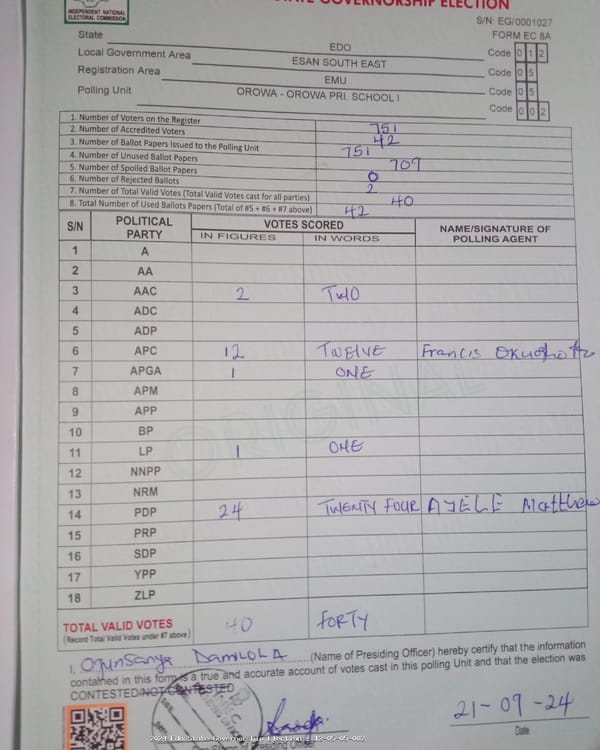 STATE GOVERNORSHIP ELECTION
INDEPENDENT NATIONAL
ELECTORAL COMMISSION
S/N: EG/0001027
FORM EC 8A
State EDO Code 0 1 2
Local Government Area ESAN SOUTH EAST Code 0 5
Registration Area EMU Code 0 5
Polling Unit OROWA - OROWA PRI. SCHOOL I Code 0 0 2
1. Number of Voters on the Register 751
2. Number of Accredited Voters 42
3. Number of Ballot Papers Issued to the Polling Unit 751
4. Number of Unused Ballot Papers 709
5. Number of Spoiled Ballot Papers 0
6. Number of Rejected Ballots 2
7. Number of Total Valid Votes (Total Valid Votes cast for all parties) 40
8. Total Number of Used Ballots Papers (Total of #5 + #6 + #7 above) 42
S/N POLITICAL PARTY VOTES SCORED NAME/SIGNATURE OF POLLING AGENT
IN FIGURES IN WORDS
1 A
2 AA
3 AAC 2 TWO
4 ADC
5 ADP
6 APC 12 TWELVE Francis
7 APGA 1 ONE
8 APM
9 APP
10 BP
11 LP 1 ONE
12 NNPP
13 NRM
14 PDP 24 TWENTY FOUR AJELE Matthew
15 PRP
16 SDP
17 YPP
18 ZLP
ORIGINAL
TOTAL VALID VOTES 40 FORTY
(Record Total Valid Votes under #7 above)
I, Ogunsanya DAMILOLA (Name of Presiding Officer) hereby certify that the information
contained in this form is a true and accurate account of votes cast in this polling Unit and that the election was
CONTESTED/NOT CONTESTED
21-09-24
Date
2024 Edo State Governorship Election : 12-05-05-002